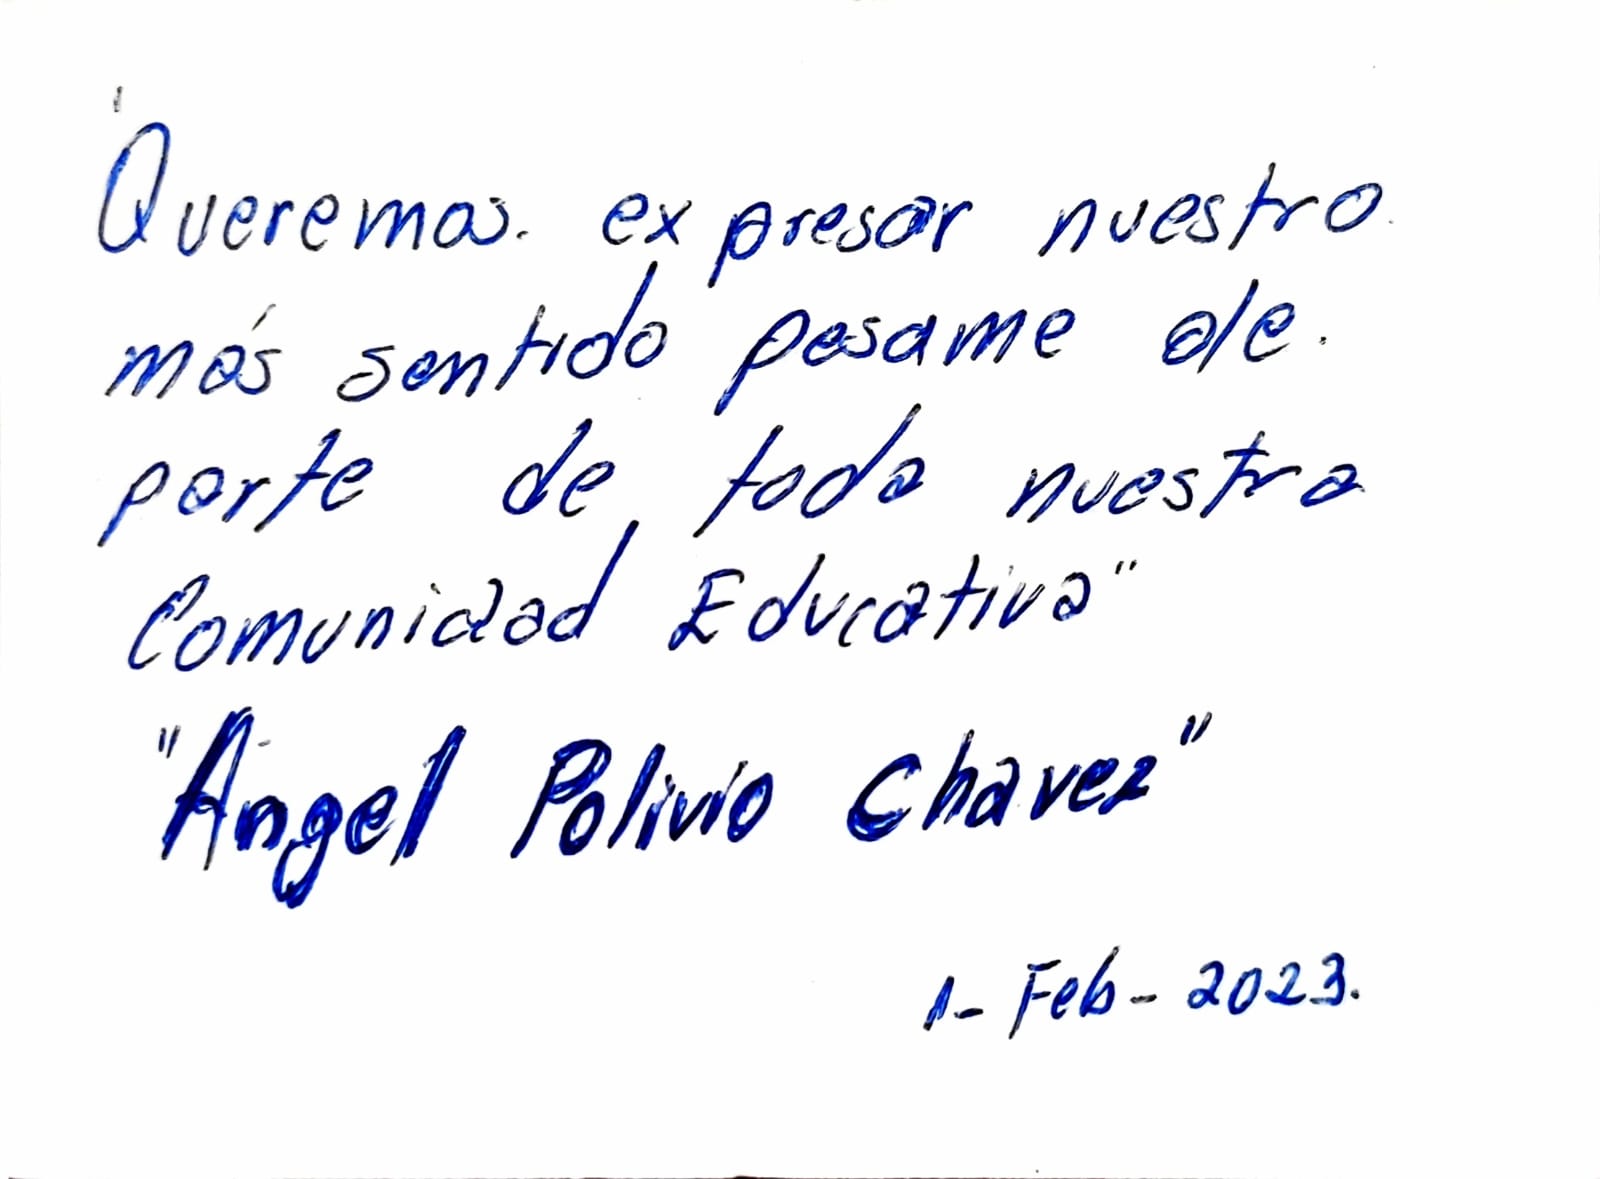 Queremos. expresar nuestro
más sentido pesame de.
parte de toda nuestra
Comunidad Educativa"
"Angel Polivio Chavez"
1- Feb - 2023.